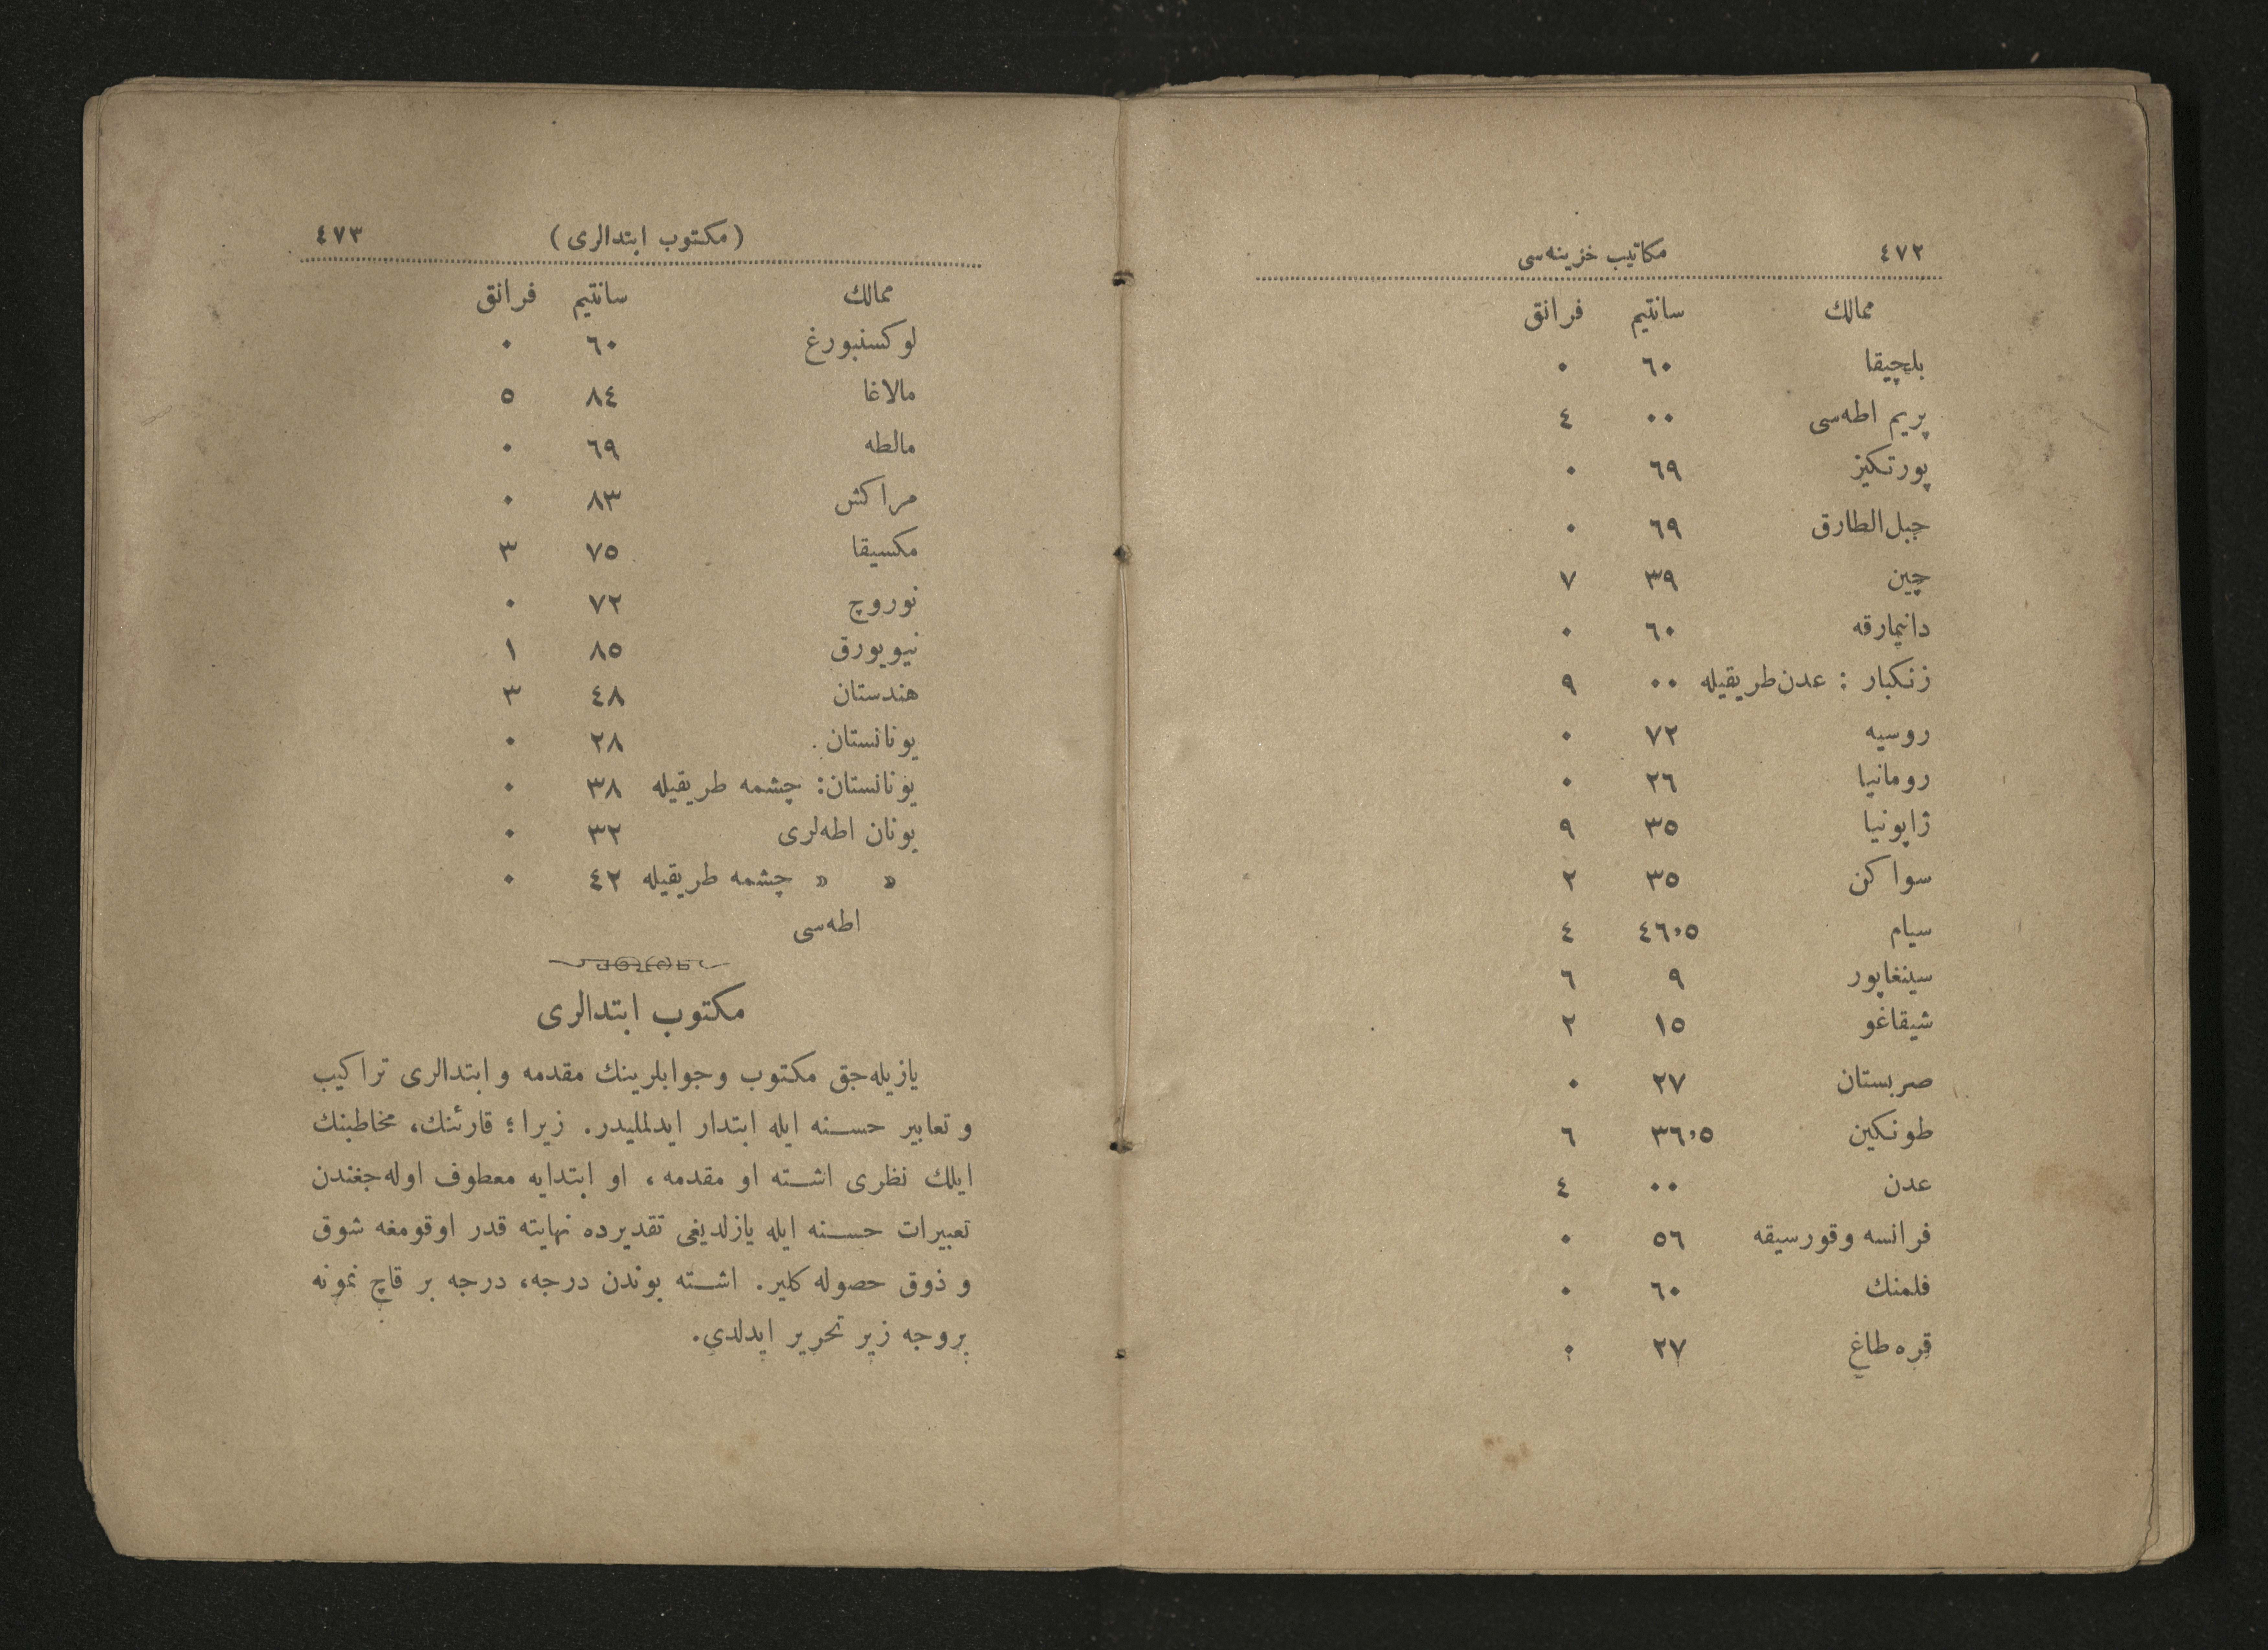 ٤٧٢ مكاتيب خزينه‌سى
ممالك سانتيم فرانق
بلچيقا ٦٠ ٠
پريم اطه‌سى ٠٠ ٤
پورتكيز ٦٩ ٠
جبل‌الطارق ٦٩ ٠
چين ٣٩ ٧
دانيمارقه ٦٠ ٠
زنكبار : عدن‌طريقيله ٠٠ ٩
روسيه ٧٢ ٠
رومانيا ٢٦ ٠
ژاپونيا ٣٥ ٩
سواكن ٣٥ ٢
سيام ٤٦،٥ ٤
سينغاپور ٩ ٦
شيقاغو ١٥ ٢
صربستان ٢٧ ٠
طونكين ٣٦،٥ ٦
عدن ٠٠ ٤
فرانسه وقورسيقه ٥٦ ٠
فلمنك ٦٠ ٠
قره طاغ ٢٧ ٠
(مكتوب ابتدالرى) ٤٧٣
ممالك سانتيم فرانق
لوكسنبورغ ٦٠ ٠
مالاغا ٨٤ ٥
مالطه ٦٩ ٠
مراكش ٨٣ ٠
مكسيقا ٧٥ ٣
نوروچ ٧٢ ٠
نيويورق ٨٥ ١
هندستان ٤٨ ٣
يونانستان ٢٨ ٠
يونانستان: چشمه طريقيله ٣٨ ٠
يونان اطه‌لرى ٣٢ ٠
» » چشمه طريقيله ٤٢ ٠
اطه‌سى
مكتوب ابتدالرى
يازيله‌جق مكتوب وجوابلرينك مقدمه و ابتدالرى تراكيب
و تعابير حسنه ايله ابتدار ايدلمليدر. زيرا؛ قارئنك، مخاطبنك
ايلك نظرى اشته او مقدمه، او ابتدايه معطوف اوله‌جغندن
تعبيرات حسنه ايله يازلديغى تقديرده نهايته قدر اوقومغه شوق
و ذوق حصوله كلير. اشته بوندن درجه، درجه بر قاچ نمونه
بروجه زير تحرير ايدلدى.